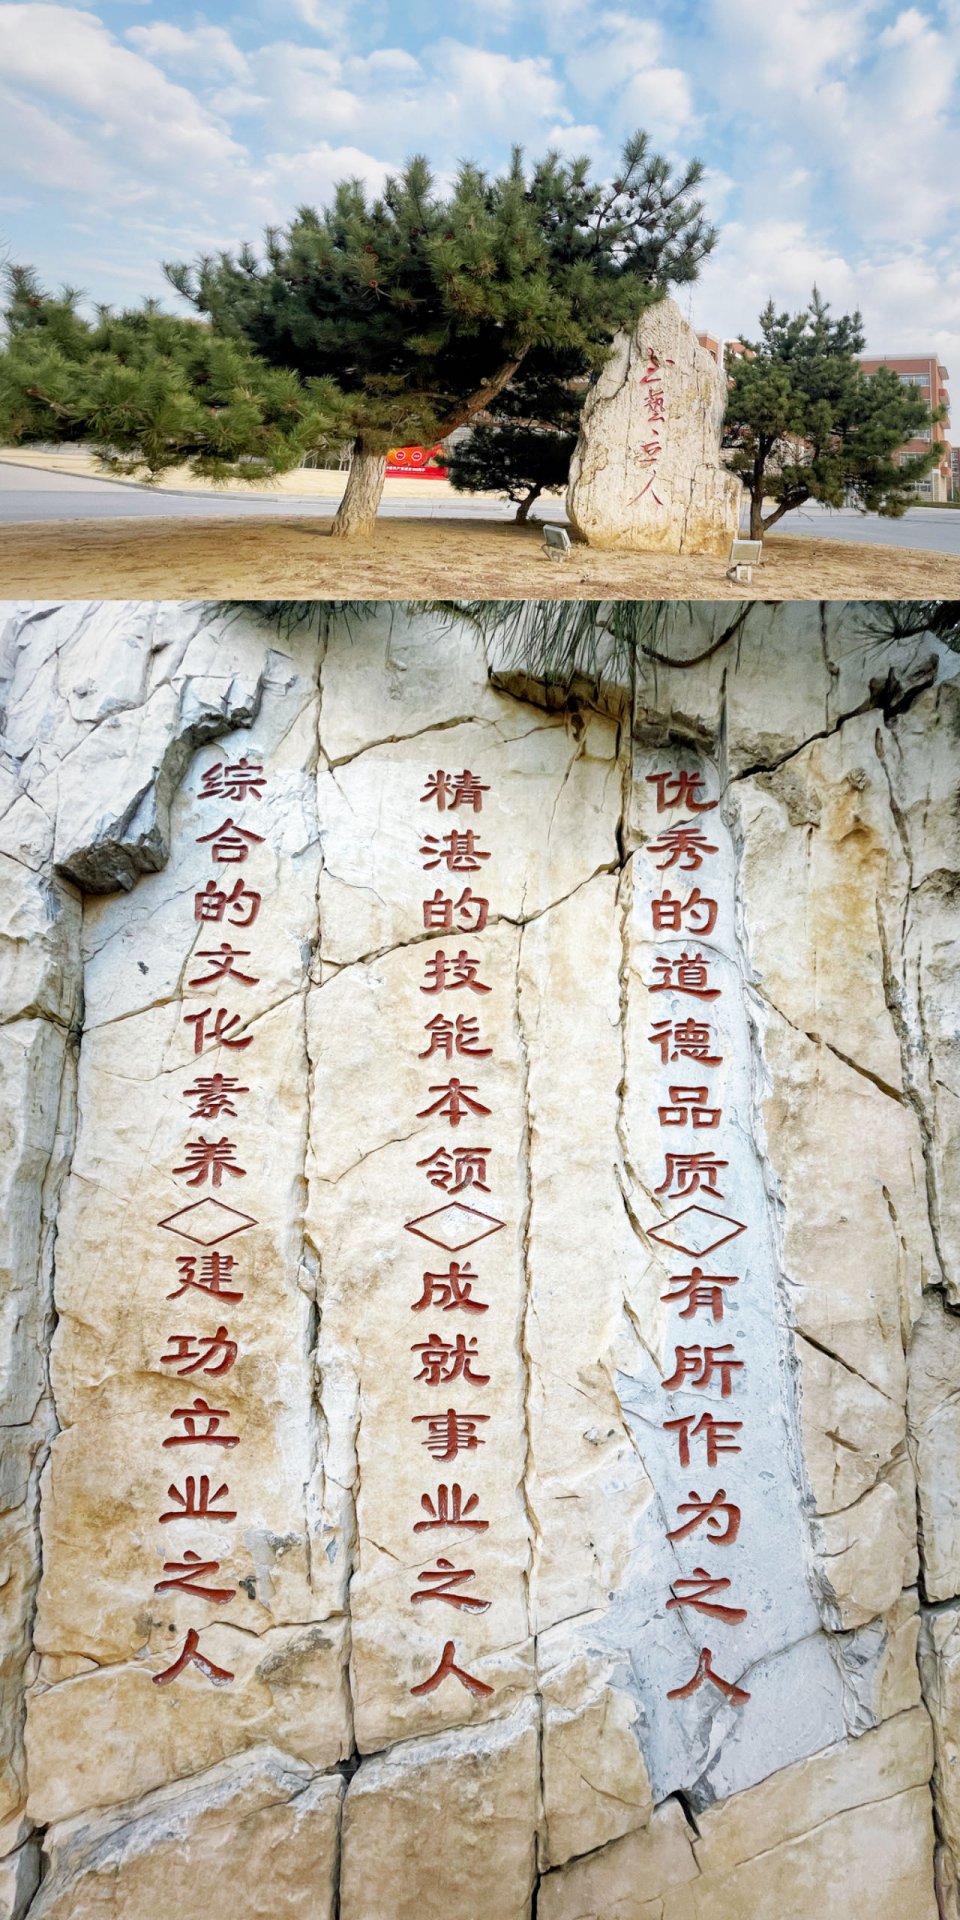 藝人
优秀的道德品质◇有所作为之人
精湛的技能本领◇成就事业之人
综合的文化素养◇建功立业之人